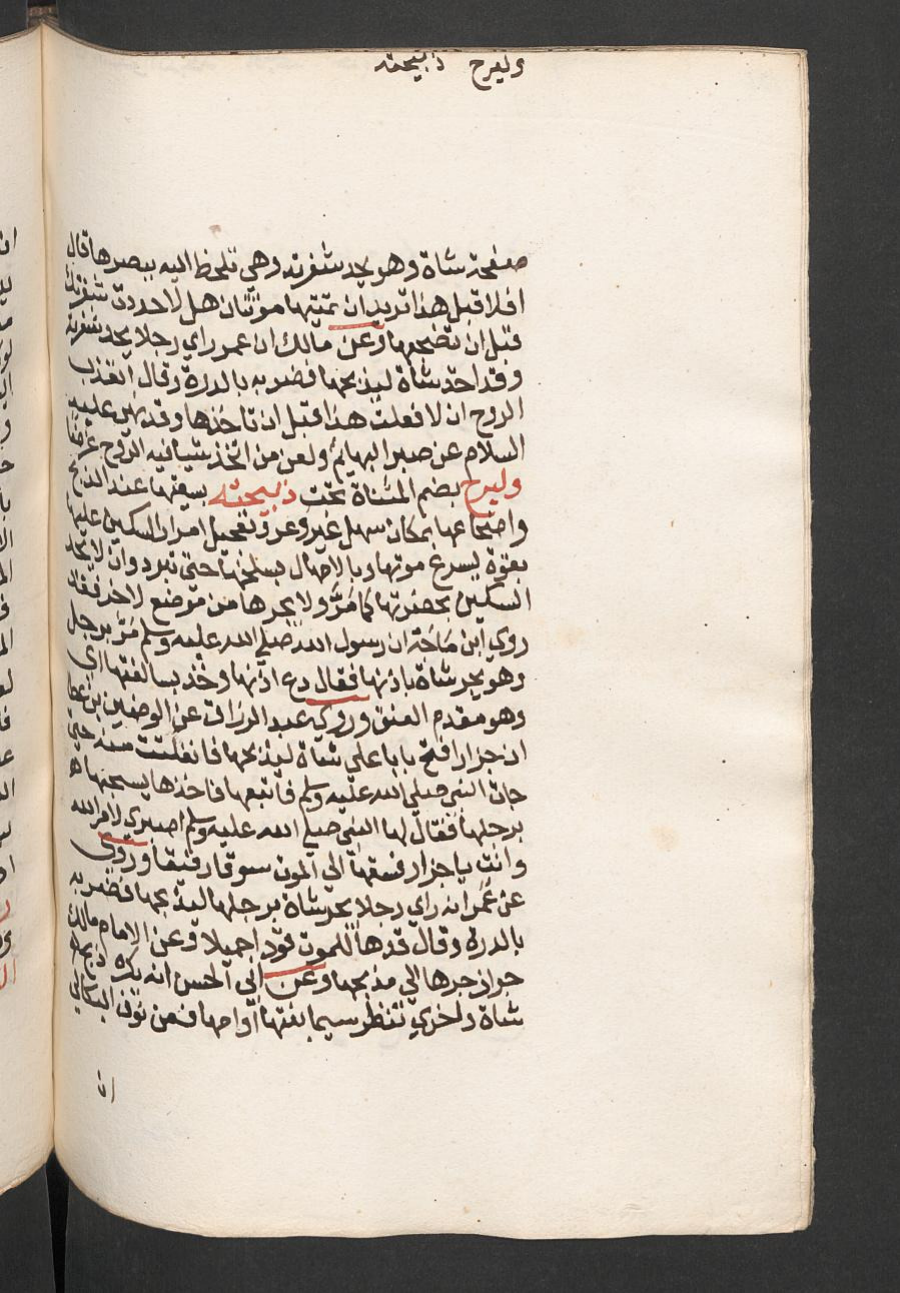 وليرح ذبيحته
صفحة شاة وهو يحد شفرته وهي تلحظ اليه ببصرها قال
افلا قبل هذا تريد ان تميتها موتتان هل لا حددت شفرتك
قبل ان تضجعها وعن مالك ان عمر راي رجلا يحد شفرته
وقد اخذ شاة ليذبحها فضربه بالدرة وقال اتعذب
الروح ان لا فعلت هذا قبل ان تاخذها وقد نهى عليه
السلام عن صبر البهايم ولعن من اتخذ شيا فيه الروح غرضا
وليرح بضم المثناة تحت ذبيحته بسقيها عند الذبح
واضجاعها بمكان سهل غير وعر وتعجيل امرار السكين عليها
بقوة ليسرع موتها وبالامهال بسلخها حتى تبرد وان لا يحد
السكين بحضرتها كما مر ولا يجرها من موضع لاخر فقد
روي ابن ماجة ان رسول الله صلي الله عليه وسلم مر برجل
وهو يجر شاة باذنها فقال دع اذنها وخذ بسالفتها اي
وهو مقدم العنق وروي عبد الرزاق عن الوضين بن عطا
ان جزارا فتح بابا على شاة ليذبحها فانفلتت منه حتى
جات النبي صلي الله عليه وسلم فاتبعها فاخذها يسحبها
برجلها فقال لها النبي صلي الله عليه وسلم اصبري لامر الله
وانت يا جزار فسقها الى الموت سوقا رفيقا وروي
عن عمر انه راي رجلا يجر شاة برجلها ليذبحها فضربه
بالدرة وقال قدها للموت قودا جميلا وعن الامام مالك
جواز جرها الي مذبحها وعن ابي الحسن انه يكره ذبح
شاة واخري تنظر سيما بنتها او امها فعن نوف البكالي
ان